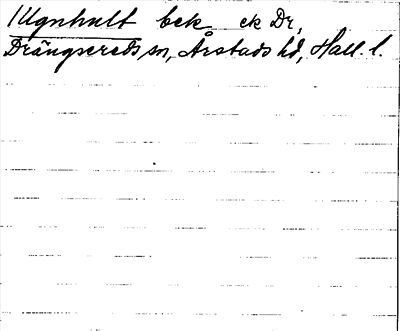 Ugnhult bek ek Dr,
Drängsereds sn, Årstads hd, Hall. l.